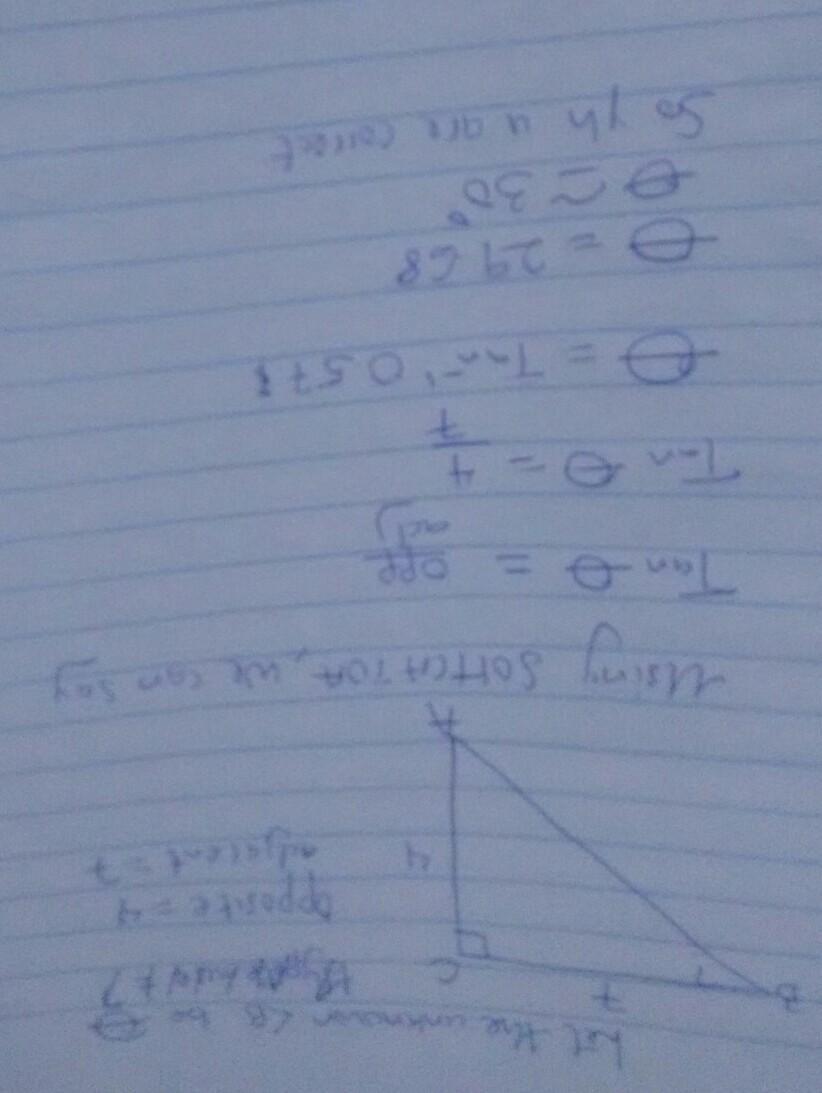 Let the unknown <B be θ
B
7
C
opposite = 4
4
adjacent = 7
A
Using SOHCAHTOA, we can say
Tan θ = opp
adj
Tan θ = 4
7
θ = Tan⁻¹ 0.571
θ = 29.68
θ ≃ 30°
So yh u are correct